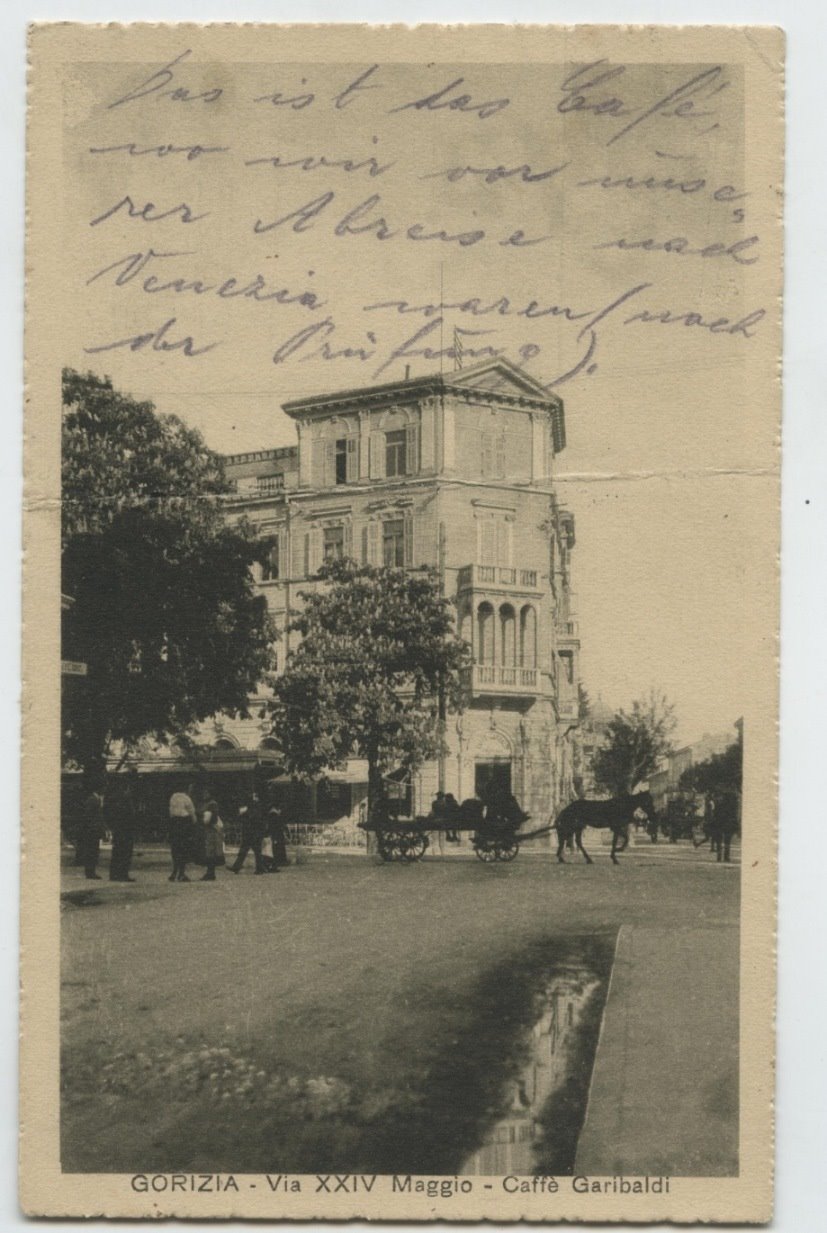 Das ist das Café,
wo wir vor unse=
rer Abreise nach
Venezia waren (nach
der Prüfung).
GORIZIA - Via XXIV Maggio - Caffè Garibaldi